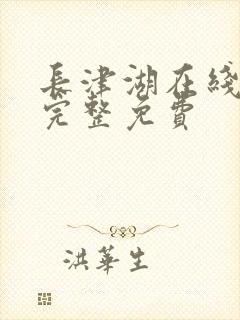 長津湖在綫
完整免費
洪華生